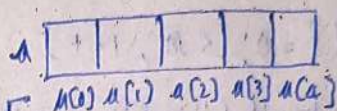 a
a[0] a[1] a[2] a[3] a[a]